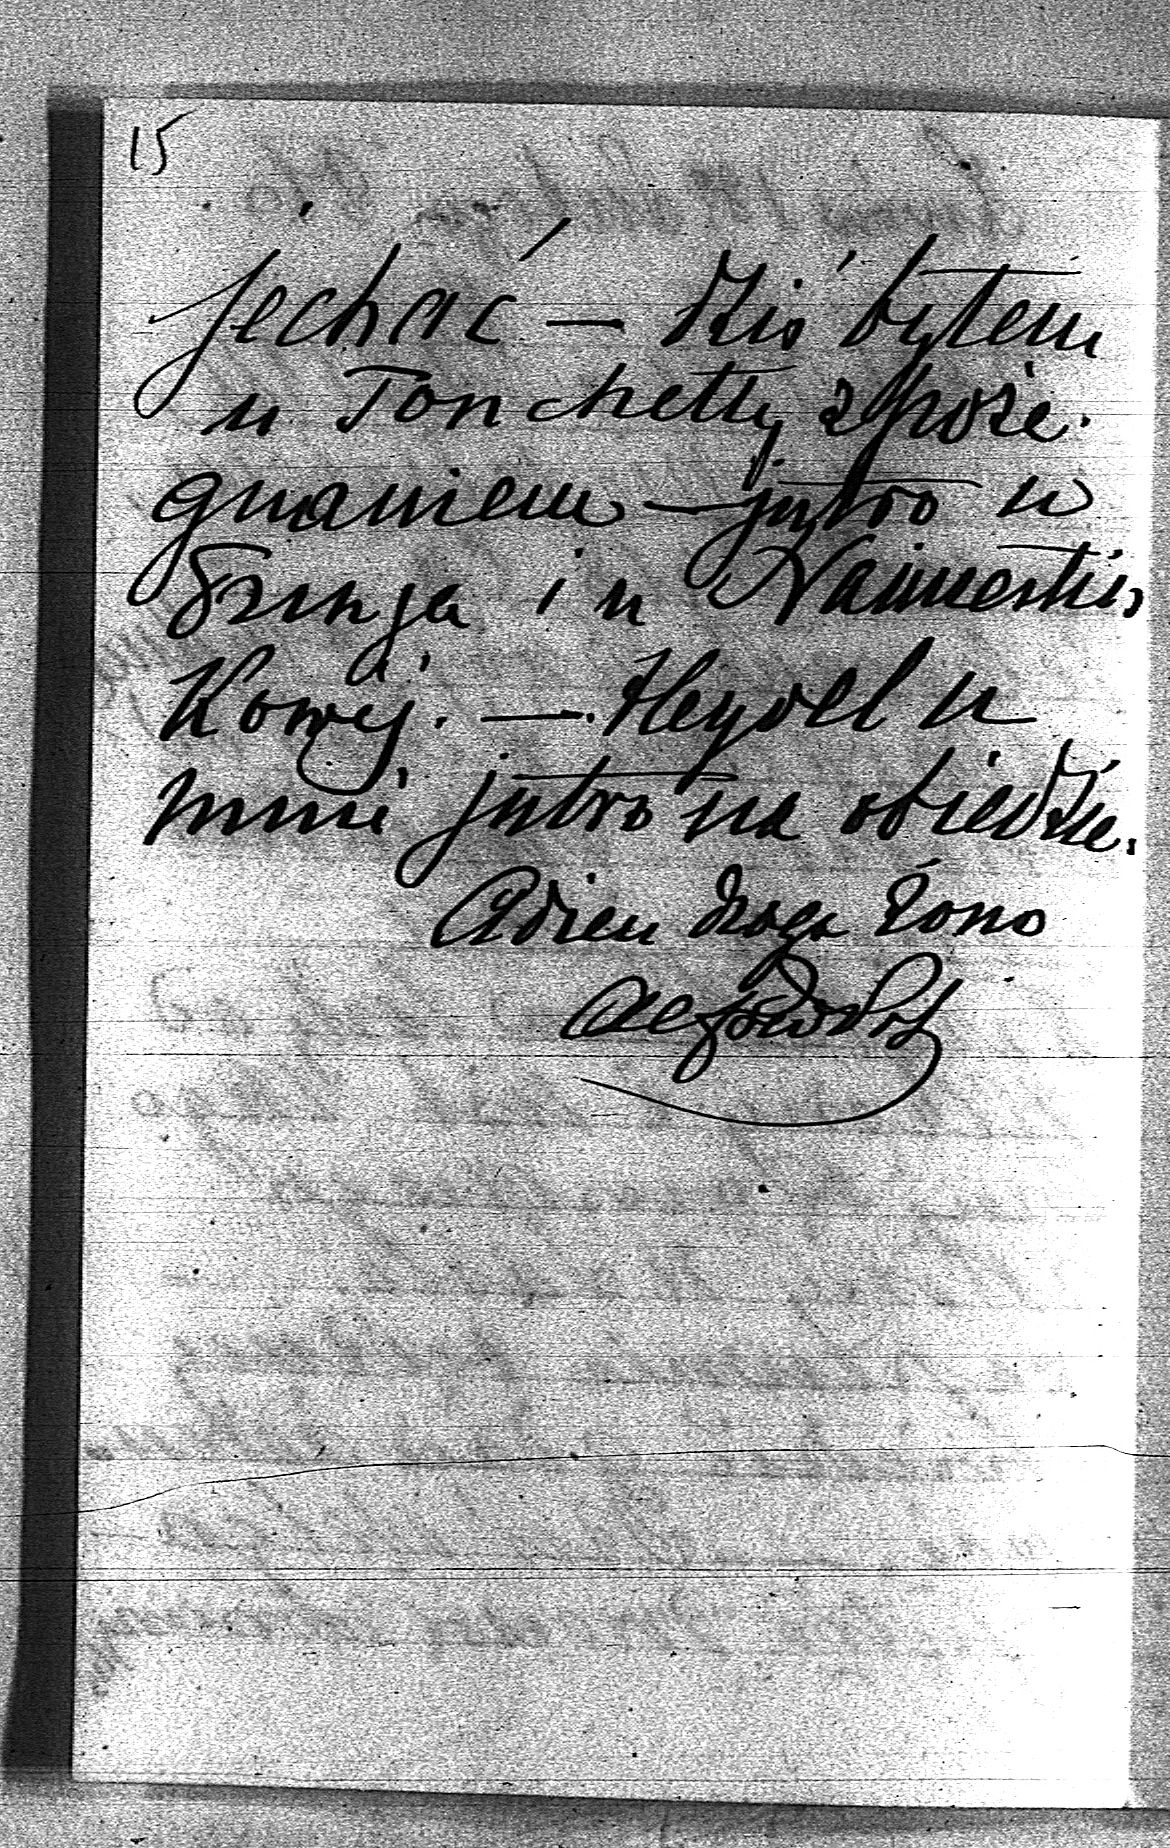 15
jechać — Dziś byłem
u Tonchetty z poże-
gnaniem — jutro u
i u Namiestni-
kowej. — Heydel u
mnie jutro na obiedzie.
Adieu droga żono